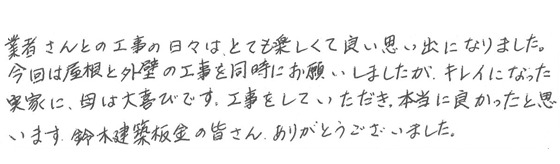 業者さんとの工事の日々は、とても楽しくて良い思い出になりました。
今回は屋根と外壁の工事を同時にお願いしましたが、キレイになった
実家に、母は大喜びです。工事をしていただき、本当に良かったと思
います。鈴木建築板金の皆さん、ありがとうございました。